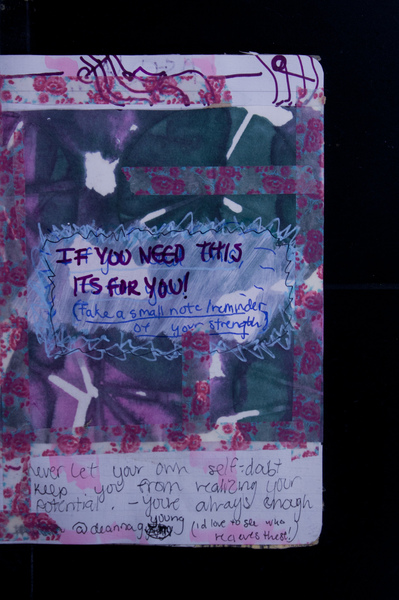 IF YOU NEED THIS
ITS FOR YOU!
(take a small note/reminder
of your strength)
never let your own self-dabt
keep you from realizing your
potential. - you're always enough
young
@deannag (i'd love to see who
recieves these!)